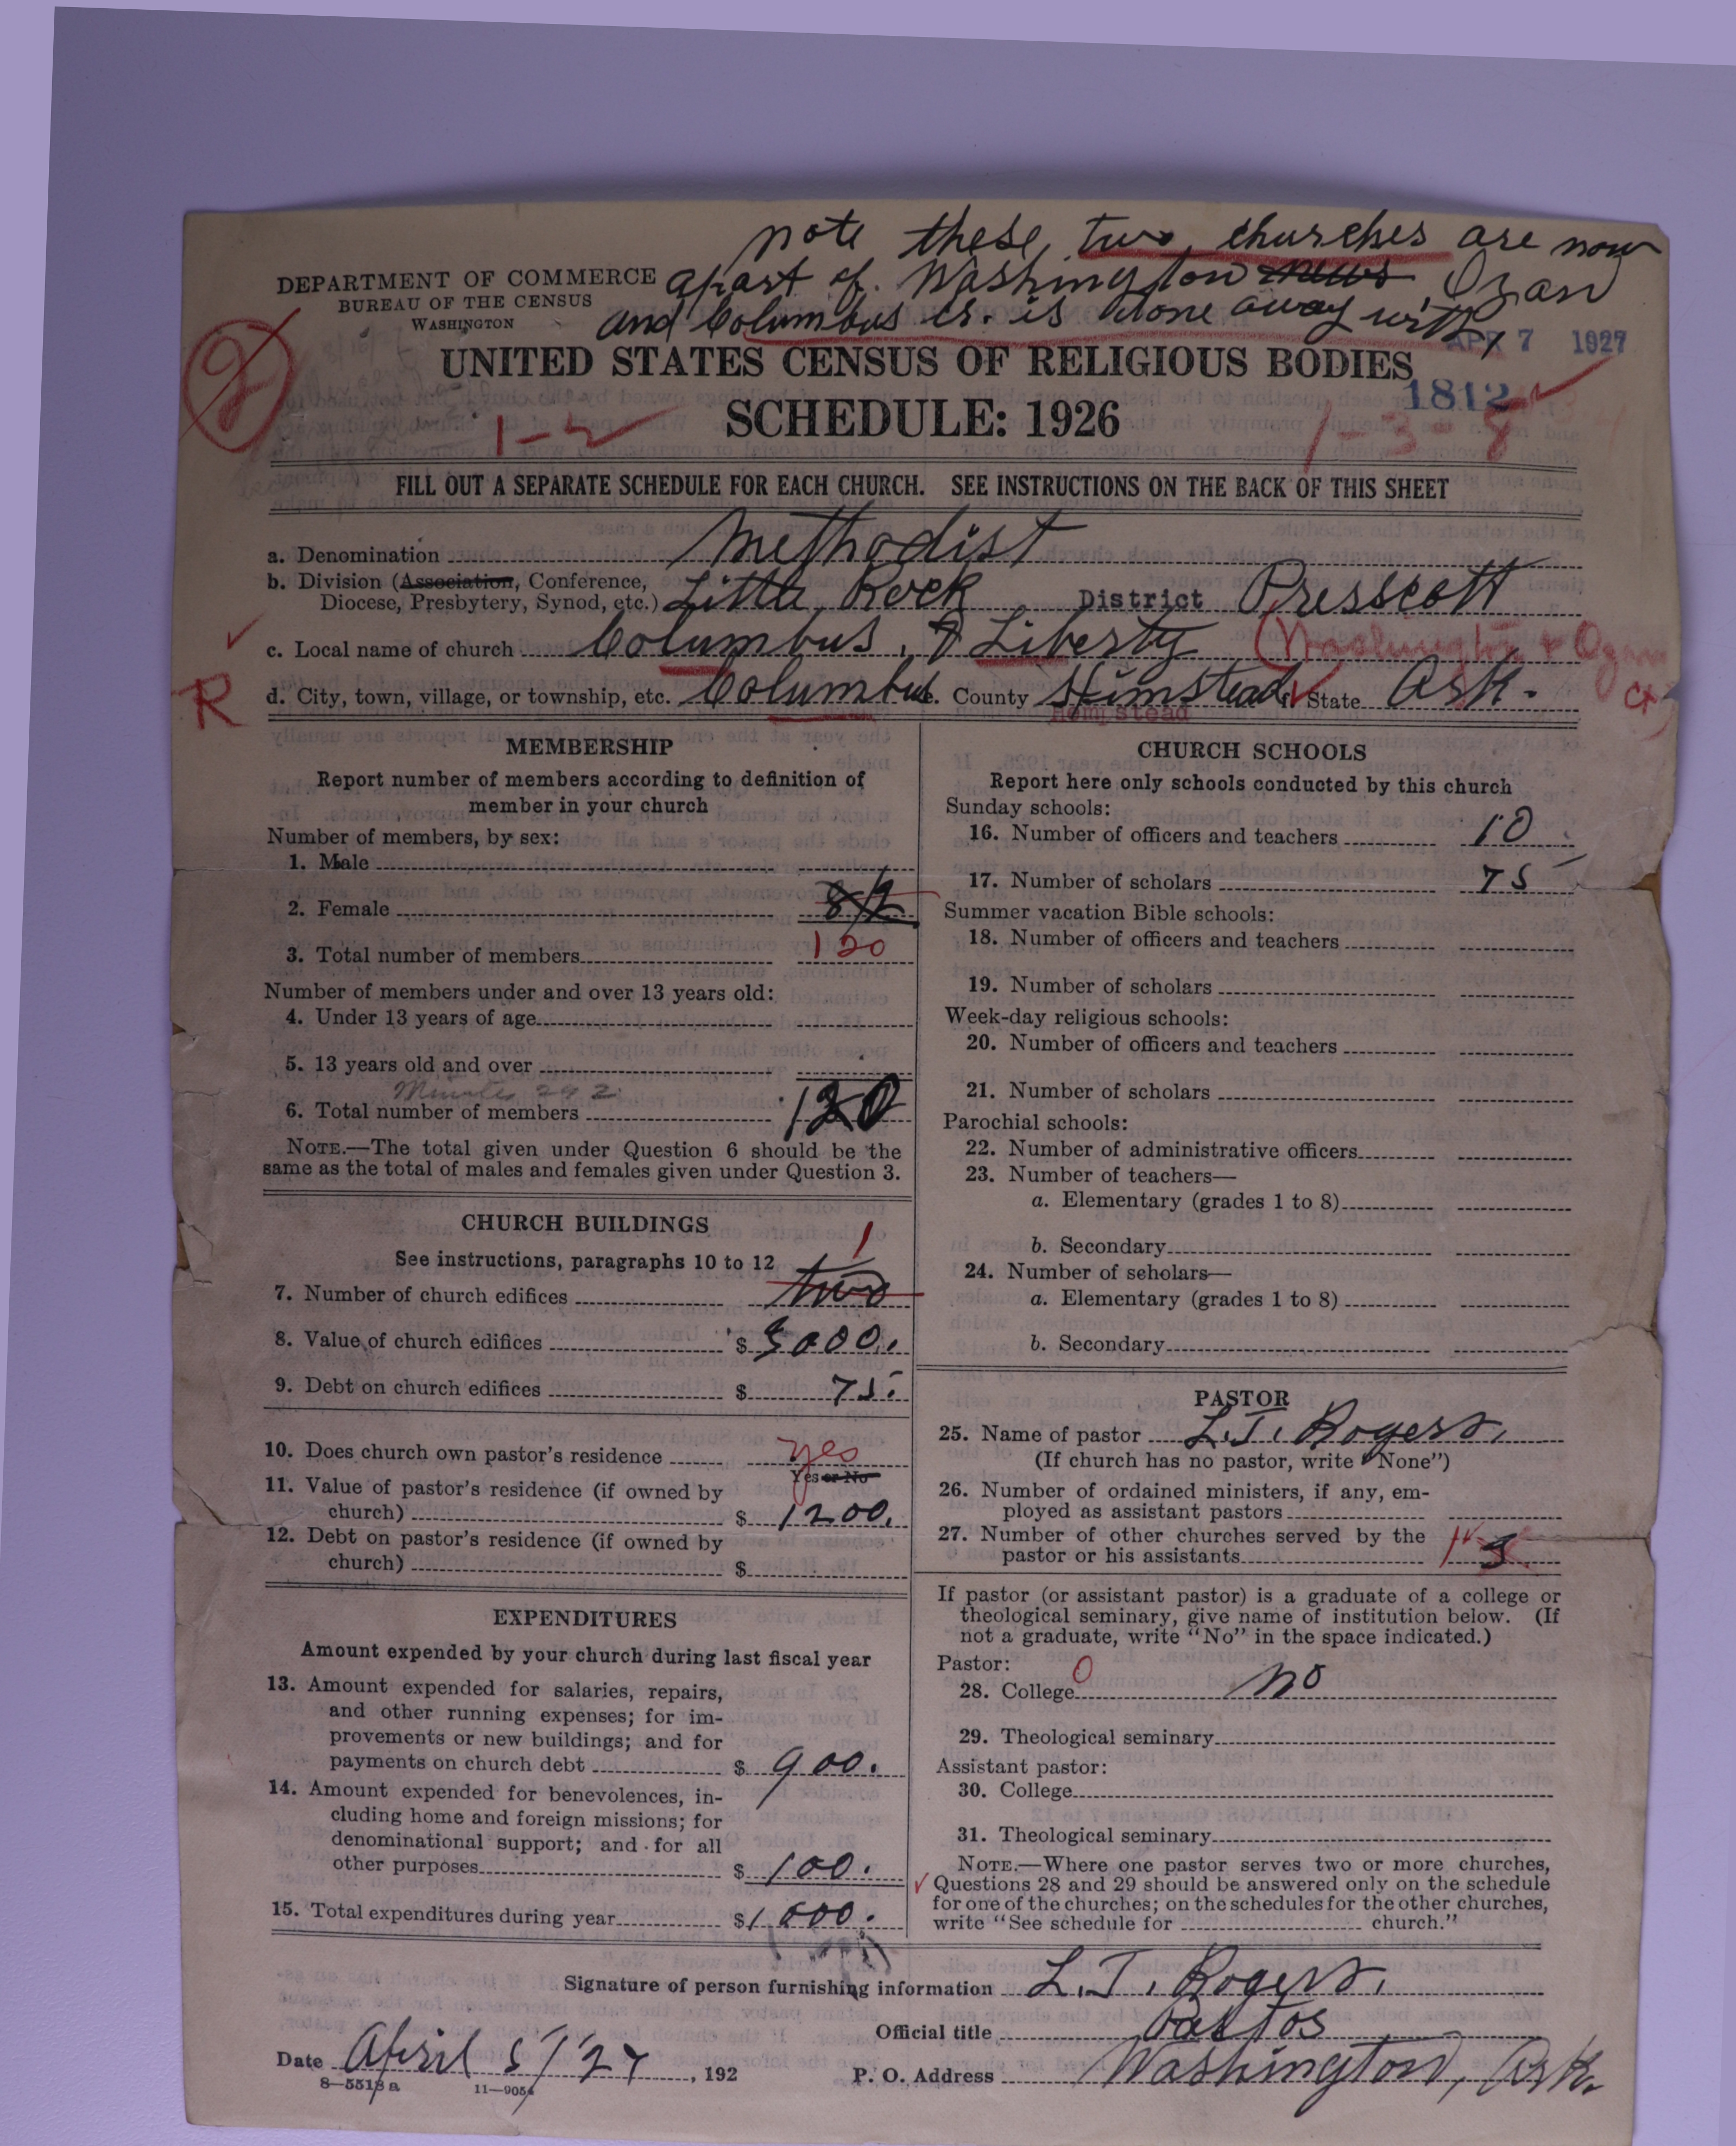 note these two churches are now
DEPARTMENT OF COMMERCE apart of Washington news Ozan
BUREAU OF THE CENSUS
WASHINGTON and Columbus cr. is done away with,
APR 7 1927
UNITED STATES CENSUS OF RELIGIOUS BODIES
1812
2 1-2 SCHEDULE: 1926 1-3-8
FILL OUT A SEPARATE SCHEDULE FOR EACH CHURCH. SEE INSTRUCTIONS ON THE BACK OF THIS SHEET
a. Denomination Methodist
b. Division (Association, Conference,
Diocese, Presbytery, Synod, etc.) Little Rock District Presscott
c. Local name of church Columbus, & Liberty (Washington & Ozan
R d. City, town, village, or township, etc. Columbus e. County Himstead f. State Ark. ct)
Hempstead
MEMBERSHIP
Report number of members according to definition of
member in your church
Number of members, by sex:
1. Male
2. Female
3. Total number of members 120
Number of members under and over 13 years old:
4. Under 13 years of age
5. 13 years old and over
Minutes 292
6. Total number of members 120
NOTE.—The total given under Question 6 should be the
same as the total of males and females given under Question 3.
CHURCH BUILDINGS
See instructions, paragraphs 10 to 12 1
7. Number of church edifices two
8. Value of church edifices $ 3000.
9. Debt on church edifices $ 75.
10. Does church own pastor's residence yes
Yes or No
11. Value of pastor's residence (if owned by
church) $ 1200.
12. Debt on pastor's residence (if owned by
church) $
EXPENDITURES
Amount expended by your church during last fiscal year
13. Amount expended for salaries, repairs,
and other running expenses; for im-
provements or new buildings; and for
payments on church debt $ 900.
14. Amount expended for benevolences, in-
cluding home and foreign missions; for
denominational support; and for all
other purposes $ 100.
15. Total expenditures during year $ 1000.
CHURCH SCHOOLS
Report here only schools conducted by this church
Sunday schools:
16. Number of officers and teachers 10
17. Number of scholars 75
Summer vacation Bible schools:
18. Number of officers and teachers
19. Number of scholars
Week-day religious schools:
20. Number of officers and teachers
21. Number of scholars
Parochial schools:
22. Number of administrative officers
23. Number of teachers—
a. Elementary (grades 1 to 8)
b. Secondary
24. Number of scholars—
a. Elementary (grades 1 to 8)
b. Secondary
PASTOR
25. Name of pastor L. J. Rogers.
(If church has no pastor, write "None")
26. Number of ordained ministers, if any, em-
ployed as assistant pastors
27. Number of other churches served by the
pastor or his assistants 3
If pastor (or assistant pastor) is a graduate of a college or
theological seminary, give name of institution below. (If
not a graduate, write "No" in the space indicated.)
Pastor: 0
28. College no
29. Theological seminary
Assistant pastor:
30. College
31. Theological seminary
NOTE.—Where one pastor serves two or more churches,
Questions 28 and 29 should be answered only on the schedule
for one of the churches; on the schedules for the other churches,
write "See schedule for church."
Signature of person furnishing information L. J. Rogers.
Official title Pastor
Date April 5/27, 192 P. O. Address Washington, Ark.
8—5518 a 11—9054